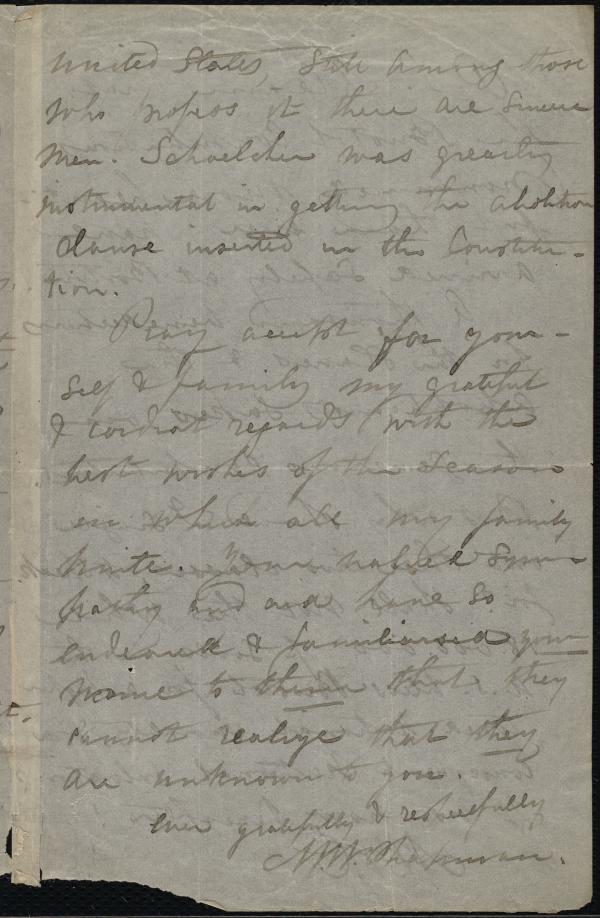 United States, Still among those
who profess it there are sincere
men. Schoelcher was greatly
instrumental in getting the abolition
clause inserted in the Constitu-
tion.
Pray accept for your-
self & family my grateful
& cordial regards with the
best wishes of the Season
in which all my family
unite. Your sym-
pathy and aid have so
endeared & familiarised your
name to them that they
cannot realize that they
are unknown to you.
Ever gratefully & respectfully
M. W. Chapman.